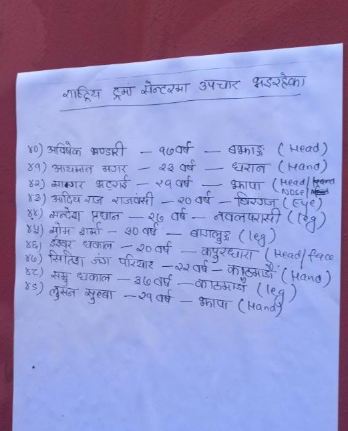 राष्ट्रिय ट्रमा सेन्टरमा उपचार भइरहेका
४०) अभिषेक भण्डारी – १७ वर्ष – बझाङ (Head)
४१) आयमान मगर – २३ वर्ष – धरान (Hand)
४२) सागर भट्टराई – २१ वर्ष – झापा (Head/ Nose/
४३) आदित्य राज राजवंशी – २० वर्ष – विरगंज (Eye)
४४) सन्देश प्रधान – २७ वर्ष – नवलपरासी (leg)
४५) सोम शर्मा – ३० वर्ष – बागलुङ (leg)
४६) ईश्वर ढकाल – २० वर्ष – कपुरधारा (Head/face
४७) जंग परियार – २२ वर्ष – काठमाडौं (Hand)
४८) ढकाल – ३७ वर्ष – काठमाडौं (leg)
४९) लुसन सुब्बा – २१ वर्ष – झापा (Hand)